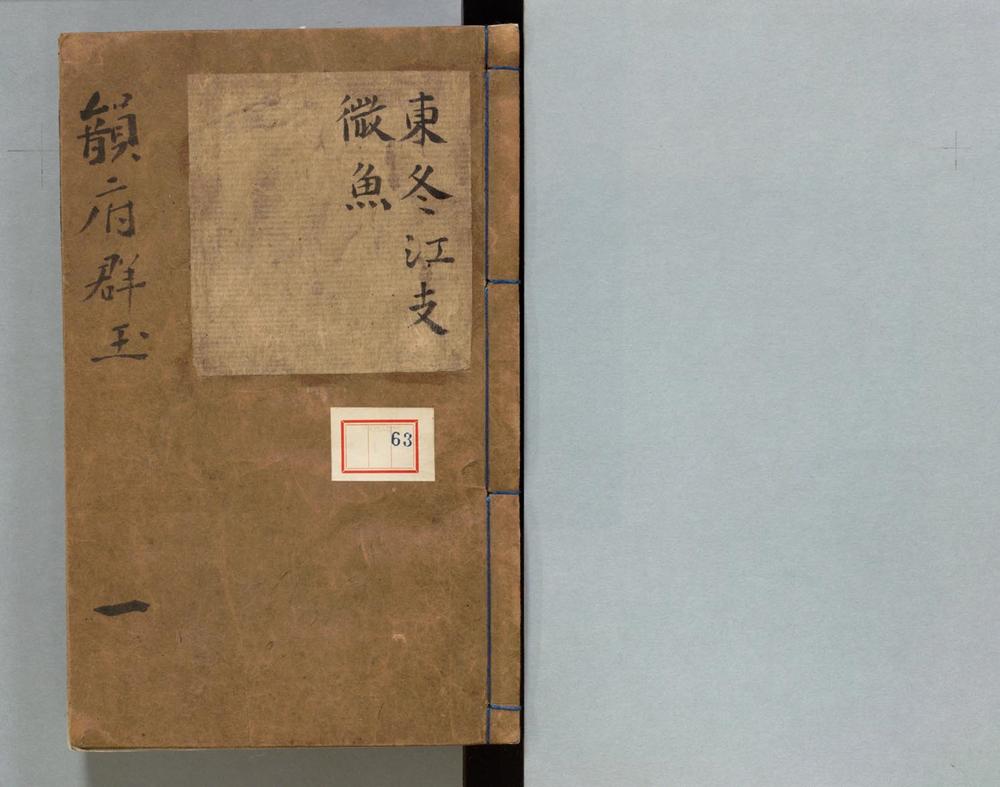 東冬江支
微魚
韻府群玉
一
63